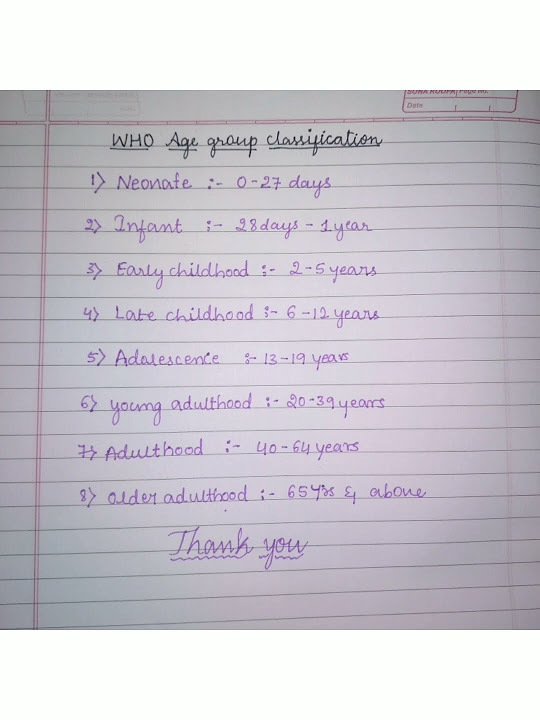 SURA ROOPA Page No.
Date
WHO Age group classification
1) Neonate :- 0-27 days
2) Infant :- 28days - 1year
3) Early childhood :- 2-5 years
4) Late childhood :- 6-12 years
5) Adolescence :- 13-19 years
6) young adulthood :- 20-39 years
7) Adulthood :- 40-64 years
8) older adulthood :- 65 Yrs & above
Thank you